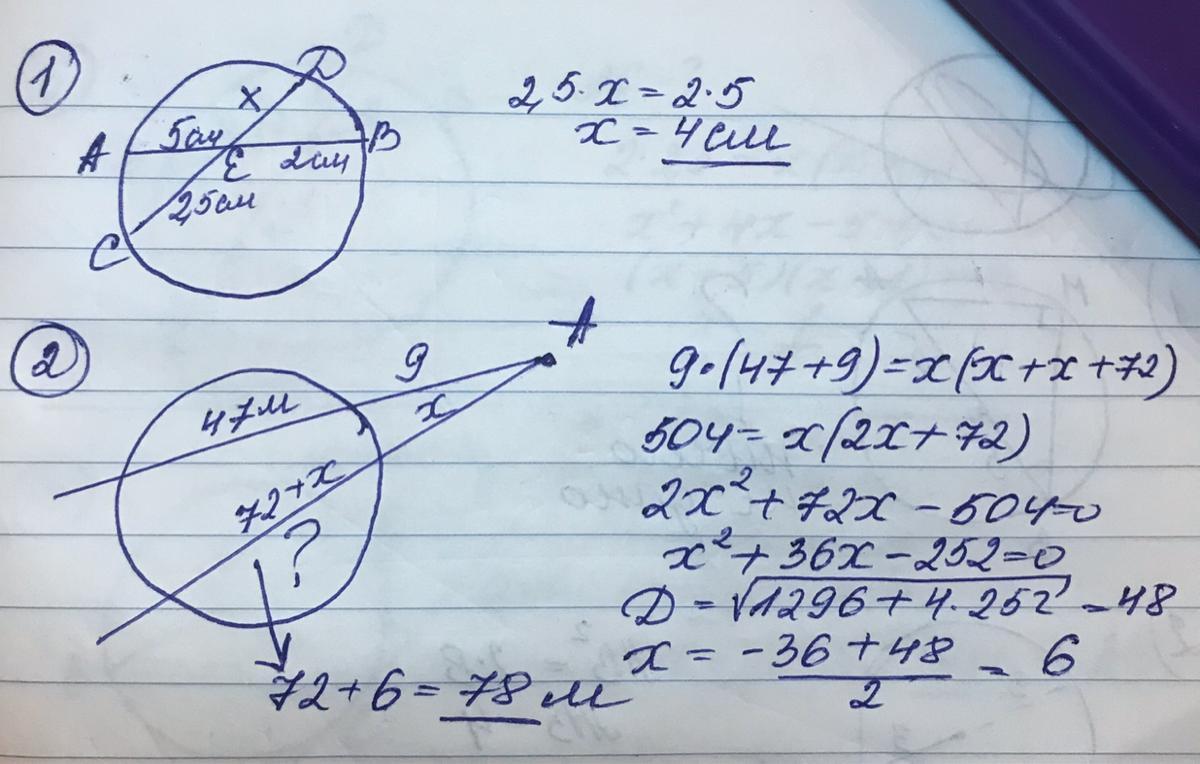 1
D
x
A 5см B
E 2см
2,5см
C
2,5·x=2·5
x = 4см
2
A
9
47м
x
72+x
?
72+6=78м
9·(47+9)=x(x+x+72)
504=x(2x+72)
2x²+72x-504=0
x²+36x-252=0
D=√1296+4·252=48
x = -36+48 = 6
2